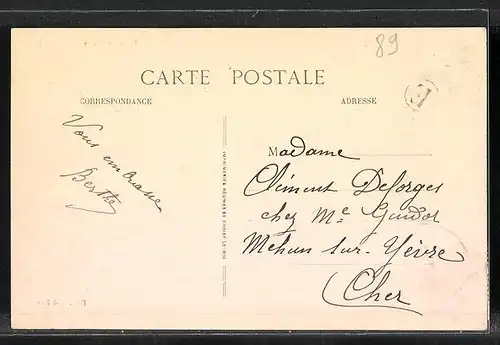 89
CARTE POSTALE
CORRESPONDANCE
ADRESSE
E
Vous embrasse
Berthe
Madame
Clément Deforges
chez Mr Guidot
Mehun sur-Yèvre
Cher